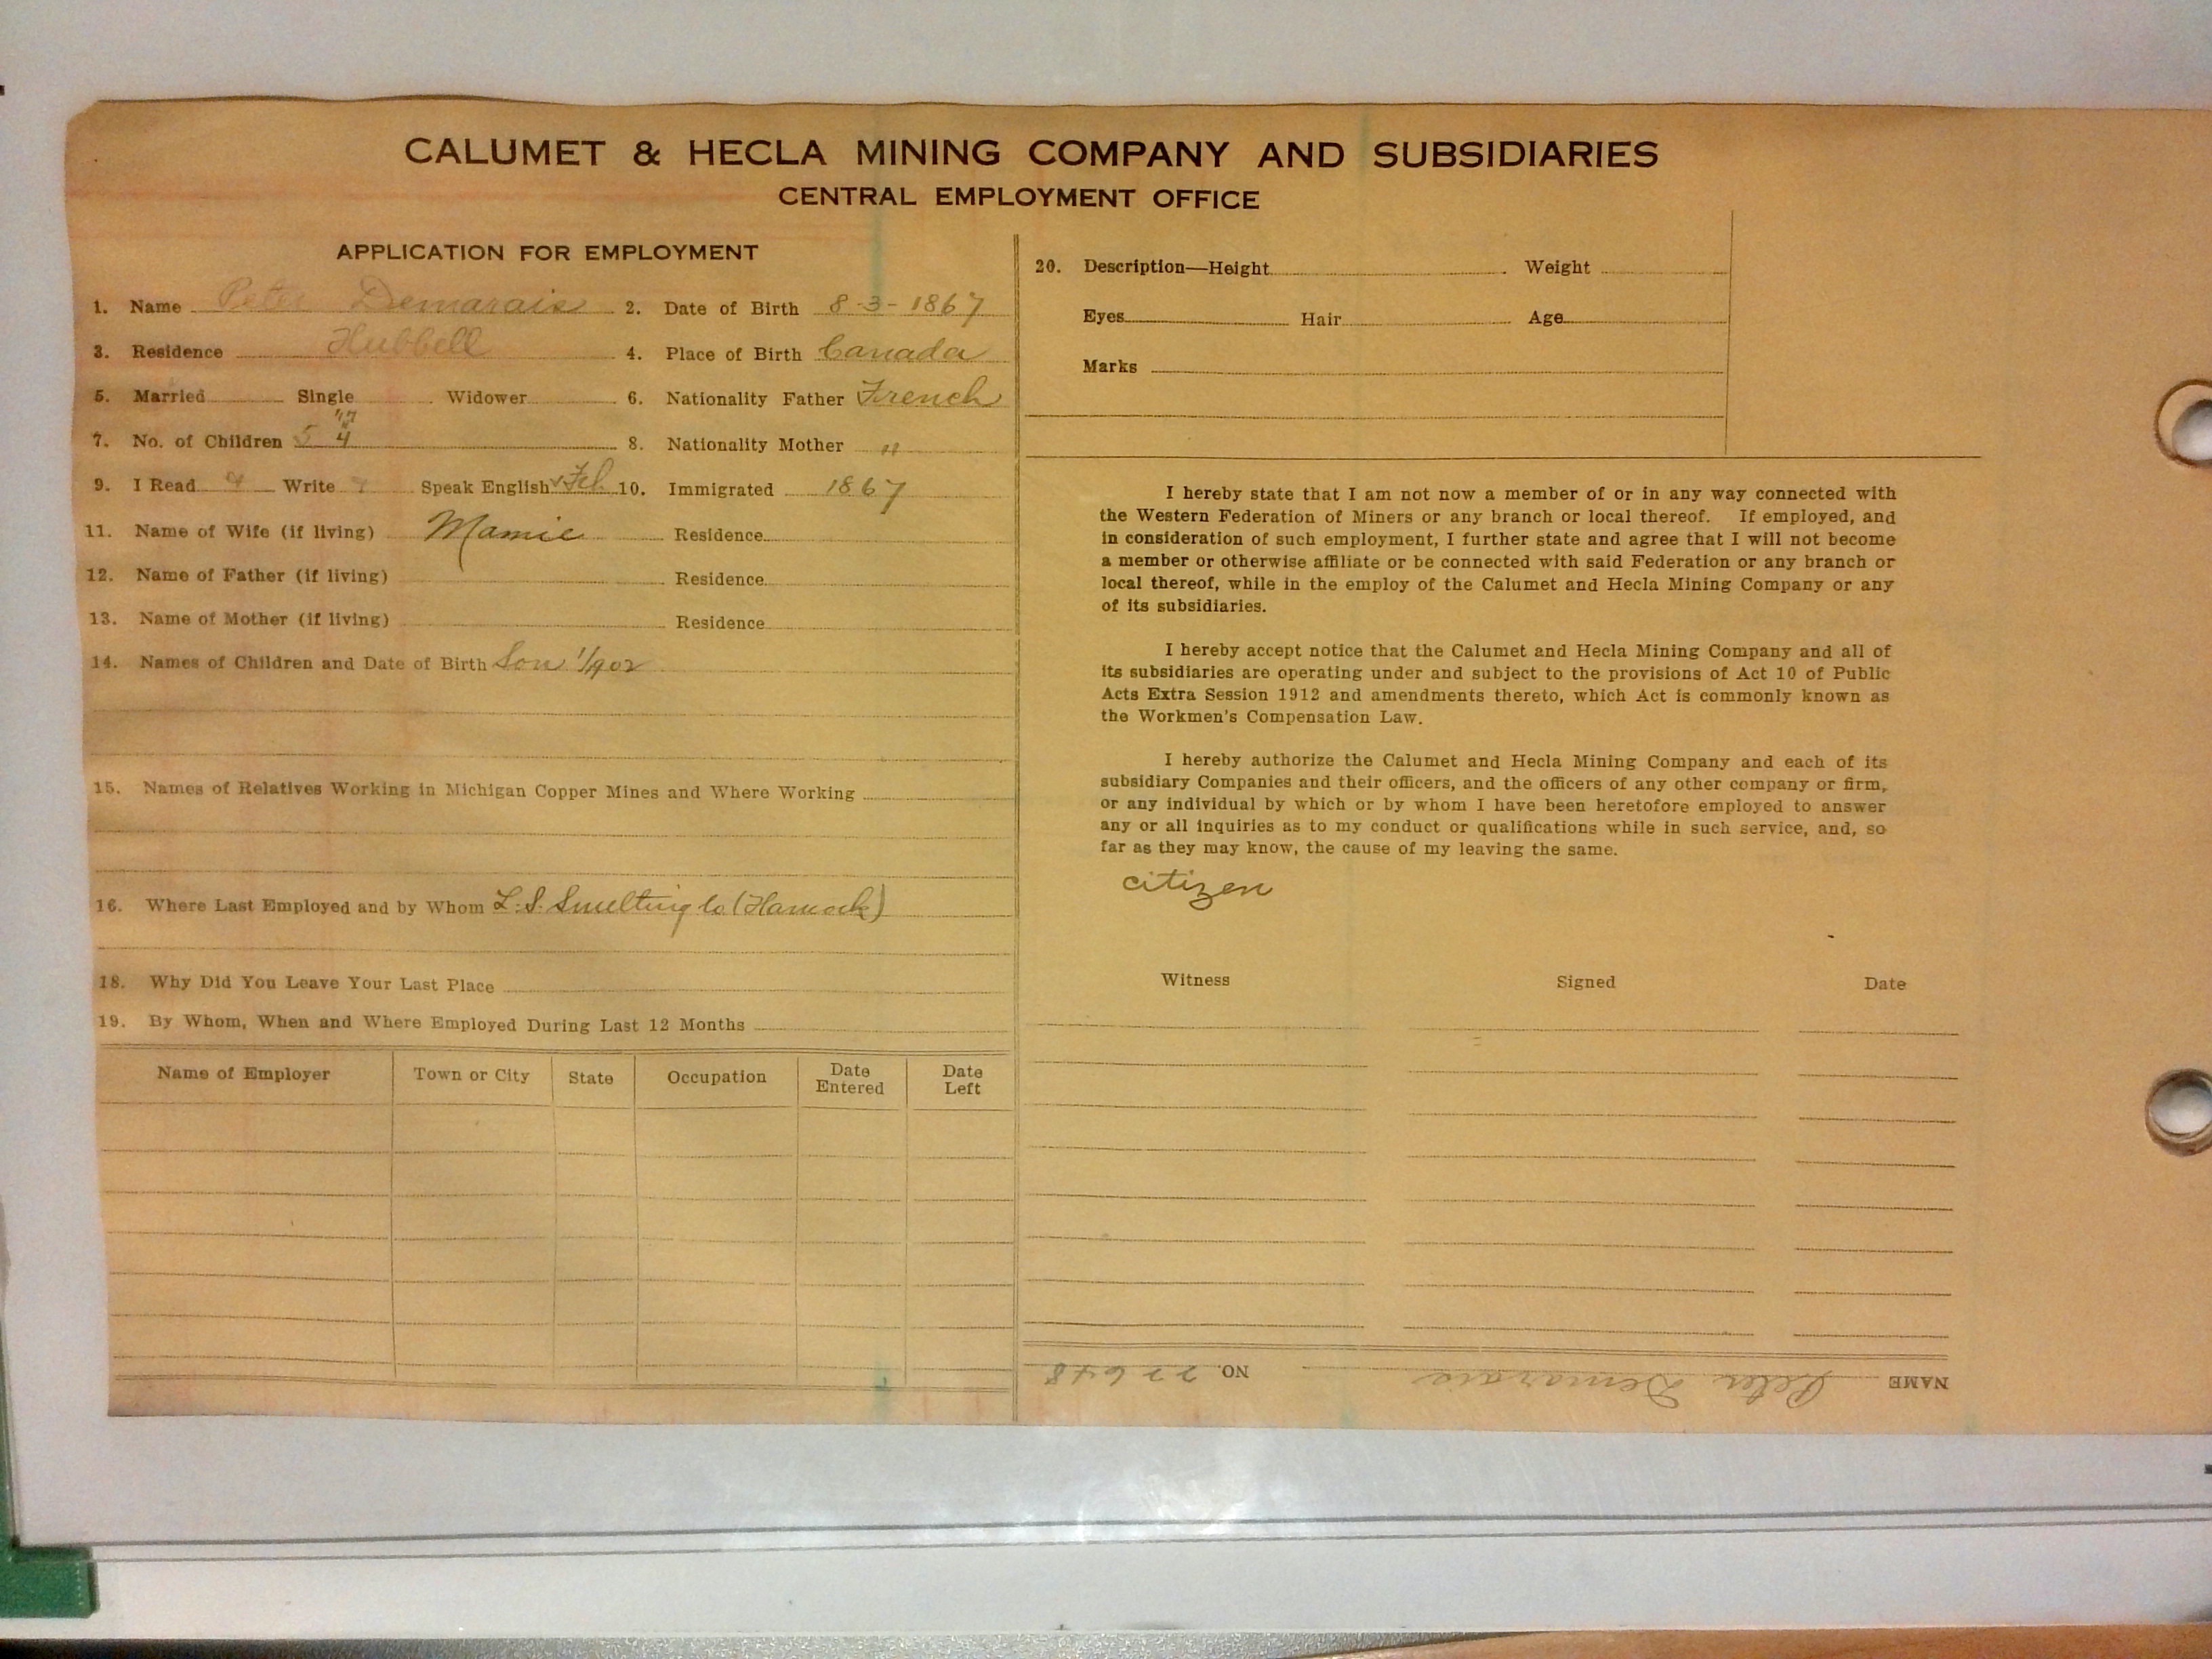 CALUMET & HECLA MINING COMPANY AND SUBSIDIARIES
CENTRAL EMPLOYMENT OFFICE
APPLICATION FOR EMPLOYMENT
1. Name Peter Demarais 2. Date of Birth 8-3-1867
3. Residence Hubbell 4. Place of Birth Canada
5. Married Single Widower 6. Nationality Father French
7. No. of Children 5 4 8. Nationality Mother "
9. I Read Write Speak English 10. Immigrated 1867
11. Name of Wife (if living) Mamie Residence
12. Name of Father (if living) Residence
13. Name of Mother (if living) Residence
14. Names of Children and Date of Birth Son 1/1902
15. Names of Relatives Working in Michigan Copper Mines and Where Working
16. Where Last Employed and by Whom L.S. Smelting Co (Hancock)
18. Why Did You Leave Your Last Place
19. By Whom, When and Where Employed During Last 12 Months
Name of Employer Town or City State Occupation Date Entered Date Left
20. Description—Height Weight
Eyes Hair Age
Marks
I hereby state that I am not now a member of or in any way connected with
the Western Federation of Miners or any branch or local thereof. If employed, and
in consideration of such employment, I further state and agree that I will not become
a member or otherwise affiliate or be connected with said Federation or any branch or
local thereof, while in the employ of the Calumet and Hecla Mining Company or any
of its subsidiaries.
I hereby accept notice that the Calumet and Hecla Mining Company and all of
its subsidiaries are operating under and subject to the provisions of Act 10 of Public
Acts Extra Session 1912 and amendments thereto, which Act is commonly known as
the Workmen's Compensation Law.
I hereby authorize the Calumet and Hecla Mining Company and each of its
subsidiary Companies and their officers, and the officers of any other company or firm,
or any individual by which or by whom I have been heretofore employed to answer
any or all inquiries as to my conduct or qualifications while in such service, and, so
far as they may know, the cause of my leaving the same.
citizen
Witness Signed Date
NAME Peter Demarais NO. 22648